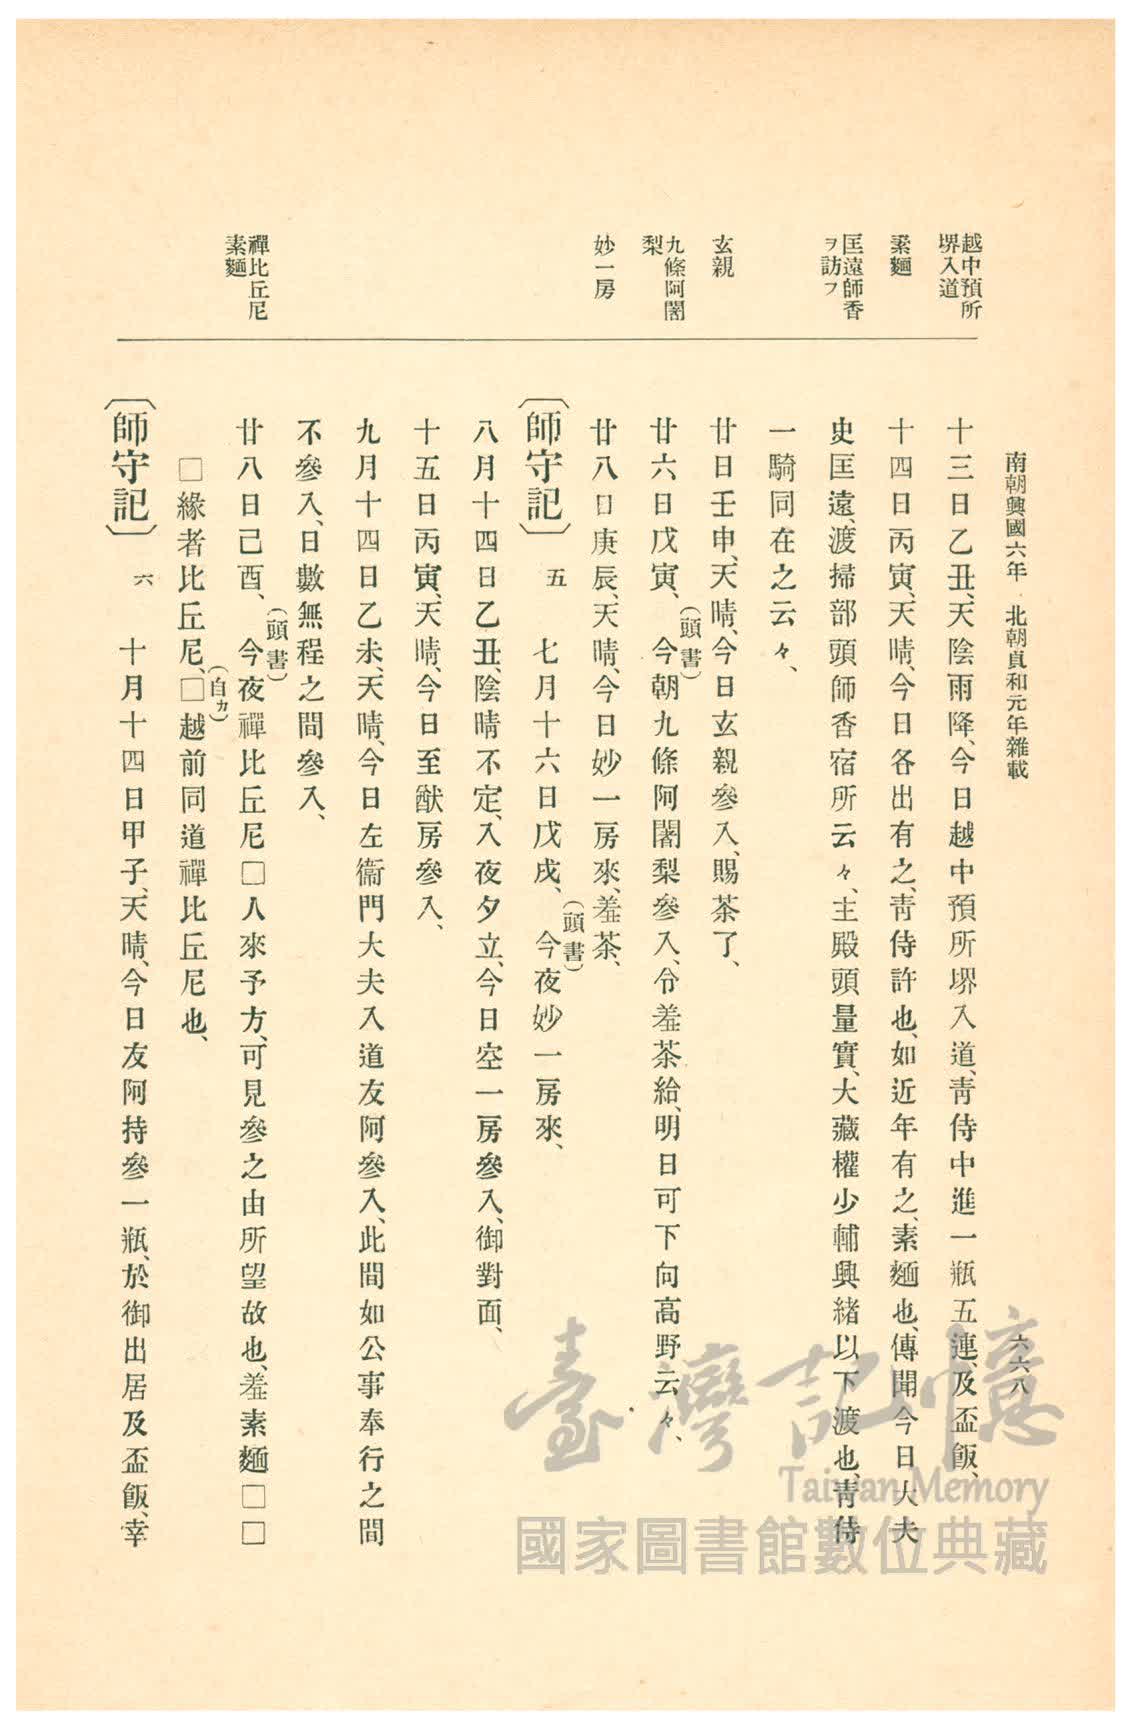 南朝興國六年 北朝貞和元年雜載
六六八
越中預所
堺入道
素麵
匡遠師香
ヲ訪フ
玄親
九條阿闍
梨
妙一房
禪比丘尼
素麵
十三日乙丑、天陰雨降、今日越中預所堺入道、靑侍中進一瓶五連、及盃飯、
十四日丙寅、天晴、今日各出有之、靑侍許也、如近年有之、素麵也、傳聞今日大夫
史匡遠、渡掃部頭師香宿所云々、主殿頭量實、大藏權少輔興緖以下渡也、靑侍
一騎同在之云々、
廿日壬申、天晴、今日玄親參入、賜茶了、
廿六日戊寅、(頭書)今朝九條阿闍梨參入、令羞茶給、明日可下向高野云々、
廿八日庚辰、天晴、今日妙一房來、羞茶、
〔師守記〕 五 七月十六日戊戌、(頭書)今夜妙一房來、
八月十四日乙丑、陰晴不定、入夜夕立、今日空一房參入、御對面、
十五日丙寅、天晴、今日至猷房參入、
九月十四日乙未、天晴、今日左衞門大夫入道友阿參入、此間如公事奉行之間
不參入、日數無程之間參入、
廿八日己酉、(頭書)今夜禪比丘尼□人來予方、可見參之由所望故也、羞素麵□□
□緣者比丘尼、□(自カ)越前同道禪比丘尼也、
〔師守記〕 六 十月十四日甲子、天晴、今日友阿持參一瓶、於御出居及盃飯、幸
臺灣記憶
Taiwan Memory
國家圖書館數位典藏